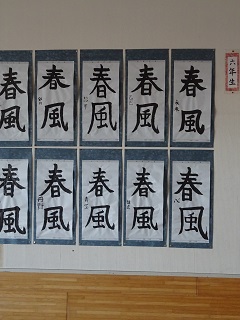 六年生
春風
春風
春風
春風
春風
春風
春風
春風
春風
春風